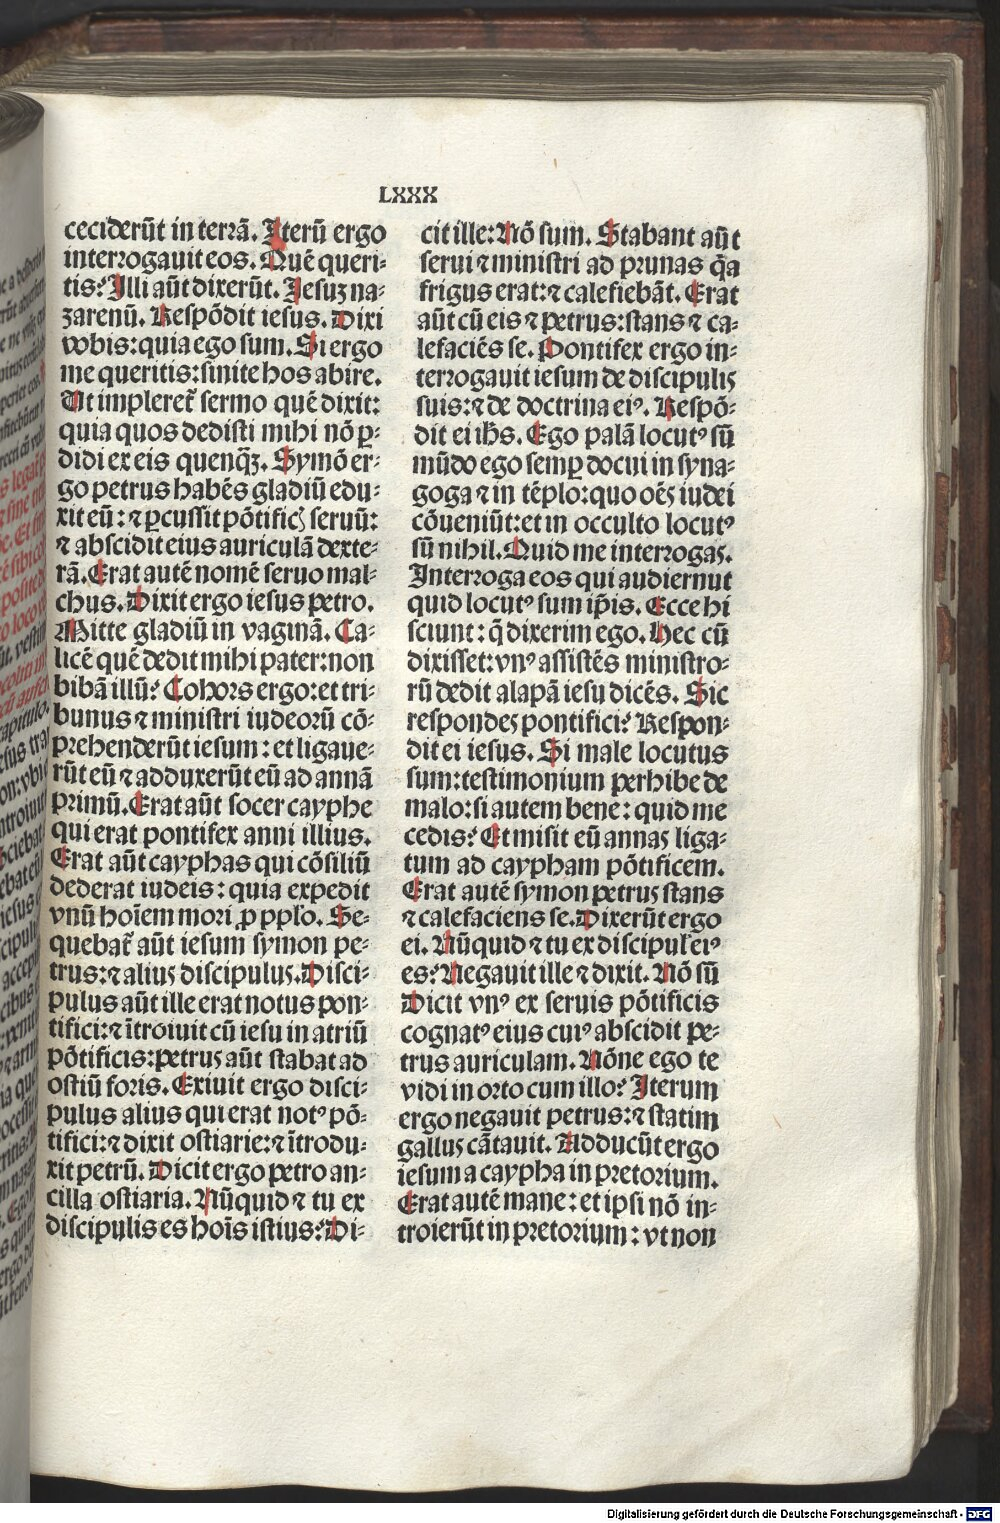 LXXX
ceciderūt in terrā. Iterū ergo
interrogauit eos. Quē queri-
tis? Illi aūt dixerūt. Iesuz na-
zarenū. Respōdit iesus. Dixi
vobis: quia ego sum. Si ergo
me queritis: sinite hos abire.
Ut impleret᷑ sermo quē dixit:
quia quos dedisti mihi nō ꝑ-
didi ex eis quenq̄ꝫ. Symō er-
go petrus habēs gladiū edu-
xit eū: ⁊ ꝑcussit pōtificꝭ seruū:
⁊ abscidit eius auriculā dexte-
rā. Erat autē nomē seruo mal-
chus. Dixit ergo iesus petro.
Mitte gladiū in vaginā. Ca-
licē quē dedit mihi pater: non
bibā illū? Cohors ergo: et tri-
bunus ⁊ ministri iudeorū cō-
prehenderūt iesum: et ligaue-
rūt eū ⁊ adduxerūt eū ad annā
primū. Erat aūt socer cayphe
qui erat pontifex anni illius.
Erat aūt cayphas qui cōsiliū
dederat iudeis: quia expedit
vnū hoīem mori ꝓ pplo̅. Se-
quebat᷑ aūt iesum symon pe-
trus: ⁊ alius discipulus. Disci-
pulus aūt ille erat notus pon-
tifici: ⁊ ītroiuit cū iesu in atriū
pōtificis: petrus aūt stabat ad
ostiū foris. Exiuit ergo disci-
pulus alius qui erat notꝰ pō-
tifici: ⁊ dixit ostiarie: ⁊ ītrodu-
xit petrū. Dicit ergo petro an-
cilla ostiaria. Nūquid ⁊ tu ex
discipulis es hoīs istius? Di-
cit ille: Nō sum. Stabant aūt
serui ⁊ ministri ad prunas q̄a
frigus erat: ⁊ calefiebāt. Erat
aūt cū eis ⁊ petrus: stans ⁊ ca-
lefaciēs se. Pontifex ergo in-
terrogauit iesum de discipulis
suis: ⁊ de doctrina eiꝰ. Respō-
dit ei ihs̄. Ego palā locutꝰ sū
mūdo ego semꝑ docui in syna-
goga ⁊ in tēplo: quo oēs iudei
cōueniūt: et in occulto locutꝰ
sū nihil. Quid me interrogas.
Interroga eos qui audiernut
quid locutꝰ sum ip̄is. Ecce hi
sciunt: q̄ dixerim ego. Hec cū
dixisset: vnꝰ assistēs ministro-
rū dedit alapā iesu dicēs. Sic
respondes pontifici? Respon-
dit ei iesus. Si male locutus
sum: testimonium perhibe de
malo: si autem bene: quid me
cedis? Et misit eū annas liga-
tum ad caypham pōtificem.
Erat autē symon petrus stans
⁊ calefaciens se. Dixerūt ergo
ei. Nūquid ⁊ tu ex discipul̕ eiꝰ
es? Negauit ille ⁊ dixit. Nō sū
Dicit vnꝰ ex seruis pōtificis
cognatꝰ eius cuiꝰ abscidit pe-
trus auriculam. Nōne ego te
vidi in orto cum illo? Iterum
ergo negauit petrus: ⁊ statim
gallus cātauit. Adducūt ergo
iesum a caypha in pretorium.
Erat autē mane: et ipsi nō in-
troierūt in pretorium: vt non
Digitalisierung gefördert durch die Deutsche Forschungsgemeinschaft - DFG